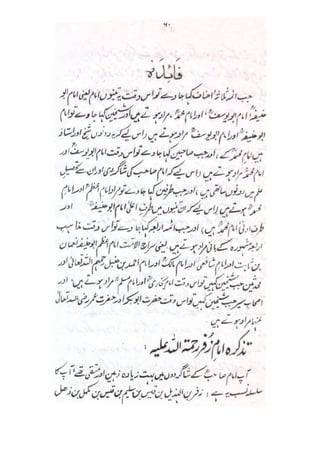 ۶۰
فائدہ
جب ائمہ ثلاثہ احناف کہا جاوے تو اس وقت یہ تینوں امام یعنی امام ابو
حنیفہؒ اور امام ابو یوسفؒ اور امام محمدؒ مراد ہوتے ہیں اور شیخین کہا جاوے تو امام
ابو حنیفہؒ اور امام ابو یوسفؒ مراد ہوتے ہیں اس لیے کہ یہ دونوں شیخ اور استاذ
ہیں امام محمدؒ کے اور جب صاحبین کہا جاوے تو اس وقت امام ابو یوسفؒ اور
امام محمدؒ مراد ہوتے ہیں اس لیے کہ امام صاحب کی شاگردی اور ان سے تحصیل
علم میں دونوں ساتھی ہیں اور جب طرفین کہا جاوے تو مراد امام اعظمؒ اور امام
محمدؒ ہوتے ہیں اس لیے کہ ان تینوں میں طرف اعلیٰ امام ابو حنیفہؒ اور
طرف ادنیٰ امام محمدؒ ہیں اور جب ائمہ اربعہ کہا جاوے تو اس وقت مذاہب
اربعہ مشہورہ کے بانی مراد ہوتے ہیں یعنی سراج الامت امام اعظم ابو حنیفہ نعمان
بن ثابت اور امام شافعیؒ اور امام مالکؒ اور امام احمد بن حنبل رحمہم اللہ تعالیٰ اور
محدثین جب شیخین کہیں تو اس وقت امام بخاریؒ اور امام مسلمؒ مراد ہوتے ہیں اور
اصحاب سیر جب شیخین کہیں تو اس وقت حضرت ابوبکر اور حضرت عمر رضی اللہ تعالیٰ
عنہما مراد ہوتے ہیں
تذکرہ امام زفر رحمۃ اللہ علیہ:
آپ امام صاحبؒ کے شاگردوں میں بہت زیادہ ذہین اور متقی تھے آپ کا
سلسلہ نسب یہ ہے: زفر بن الہذیل بن قیس بن سلیم بن قیس بن مکمل بن ذہل